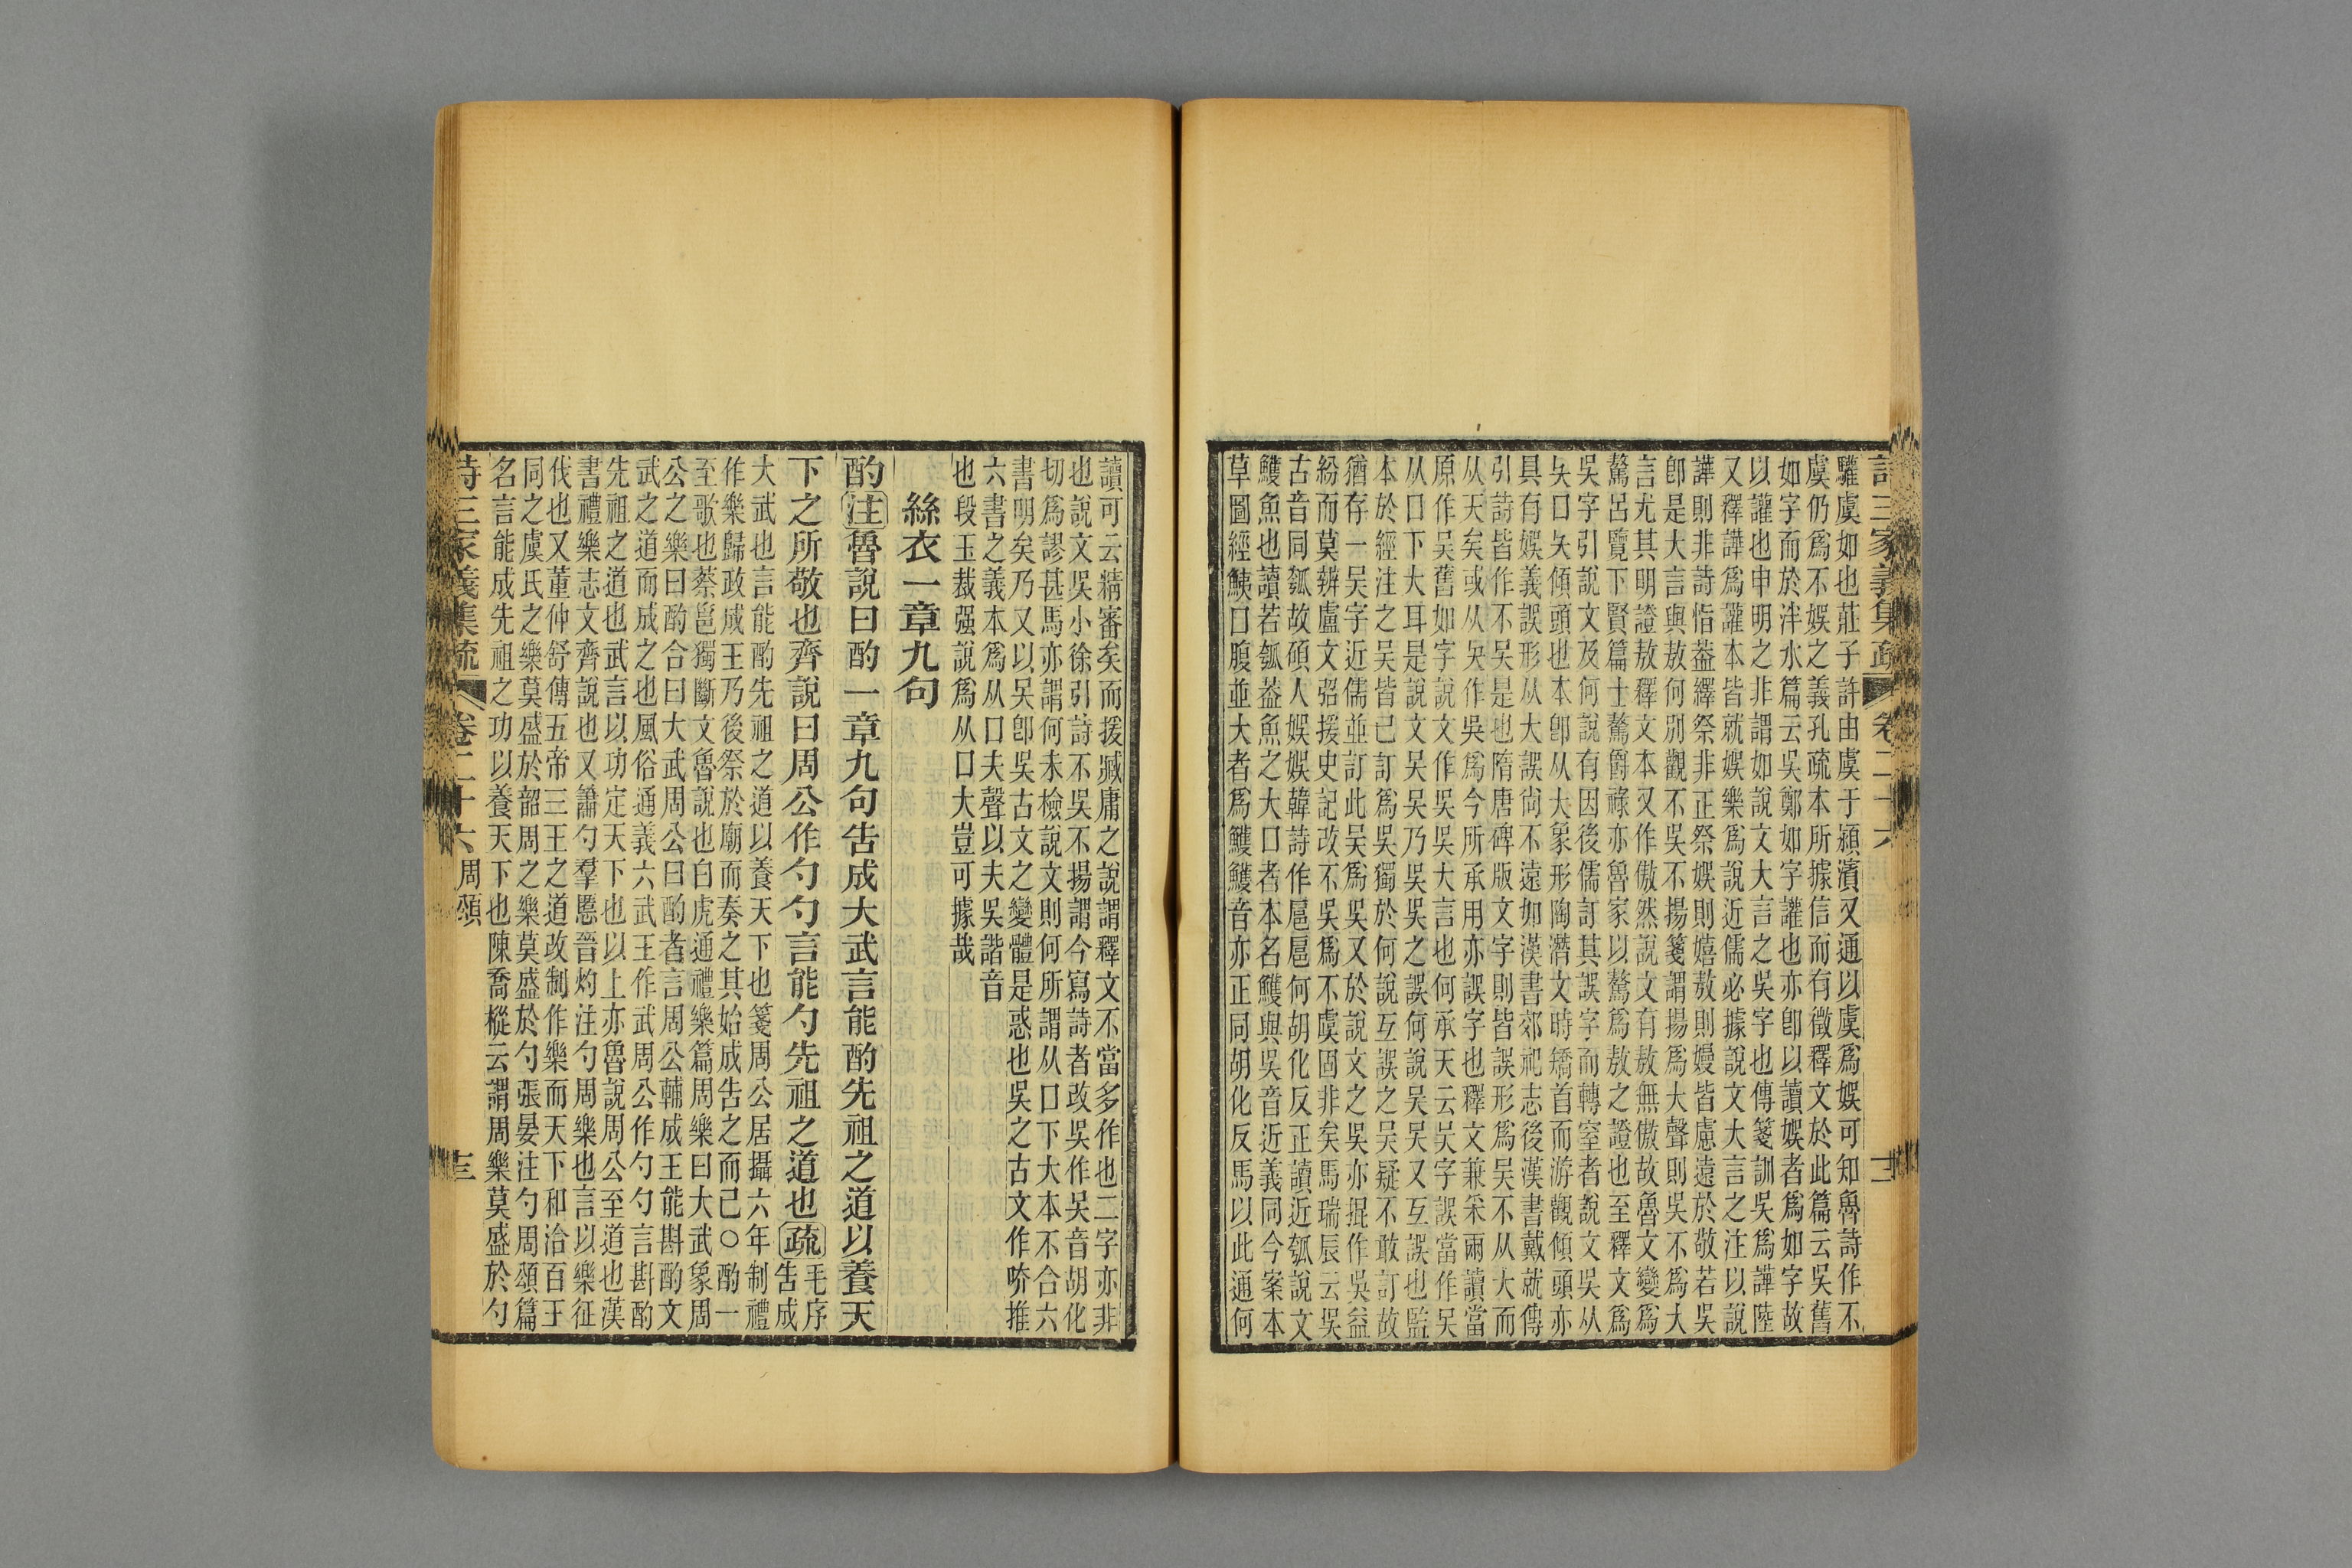 詩三家義集疏 卷二十六
驩虞如也莊子許由虞于潁濱又通以虞爲娛可知魯詩作不
虞仍爲不娛之義孔疏本所據信而有徵釋文於此篇云吳舊
如字而於泮水篇云吳鄭如字讙也亦卽以讀娛者爲如字故
以讙也申明之非謂如說文大言之吳字也傳箋訓吳爲譁陸
又釋譁爲讙本皆就娛樂爲說近儒必據說文大言之注以說
譁則非詩恉葢繹祭非正祭娛則嬉敖則嫚皆慮遠於敬若吳
卽是大言與敖何別觀不吳不揚箋謂揚爲大聲則吳不爲大
言尤其明證敖釋文本又作傲然說文有敖無傲故魯文變爲
驁呂覽下賢篇士驁爵祿亦魯家以驁爲敖之證也至釋文爲
吳字引說文及何說有因後儒訂其誤字而轉窒者說文吳从
矢口矢傾頭也本卽从大象形陶潛文時矯首而游觀傾頭亦
具有娛義誤形从大誤尙不遠如漢書郊祀志後漢書戴就傳
引詩皆作不吳是也隋唐碑版文字則皆誤形爲吴不从大而
从天矣或从旲作吳爲今所承用亦誤字也釋文兼采兩讀當
原作吴舊如字說文作吳吳大言也何承天云吴字誤當作吴
从口下大耳是說文吴吳乃吳吳之誤何說吴吴又互誤也監
本於經注之吴皆已訂爲吳獨於何說互誤之吴疑不敢訂故
猶存一吴字近儒並訂此吴爲吳又於說文之吳亦掍作吳益
紛而莫辨盧文弨援史記改不吳爲不虞固非矣馬瑞辰云吳
古音同瓠故碩人娛娛韓詩作扈扈何胡化反正讀近瓠說文
鱯魚也讀若瓠葢魚之大口者本名鱯與吳音近義同今案本
草圖經鮧口腹並大者爲鱯鱯音亦正同胡化反馬以此通何
讀可云精審矣而援臧庸之說謂釋文不當多作也二字亦非
也說文吳小徐引詩不吳不揚謂今寫詩者改吳作吴音胡化
切爲謬甚馬亦謂何未檢說文則何所謂从口下大本不合六
書明矣乃又以吴卽吳古文之變體是惑也吳之古文作㕦推
六書之義本爲从口夫聲以夫吳諧音
也段玉裁强說爲从口大豈可據哉
絲衣一章九句
酌注魯說曰酌一章九句告成大武言能酌先祖之道以養天
下之所敬也齊說曰周公作勺勺言能勺先祖之道也疏毛序告成
大武也言能酌先祖之道以養天下也箋周公居攝六年制禮
作樂歸政成王乃後祭於廟而奏之其始成告之而已○酌一
至歌也蔡邕獨斷文魯說也白虎通禮樂篇周樂曰大武象周
公之樂曰酌合曰大武周公曰酌者言周公輔成王能斟酌文
武之道而成之也風俗通義六武王作武周公作勺勺言斟酌
先祖之道也武言以功定天下也以上亦魯說周公至道也漢
書禮樂志文齊說也又簫勺羣慝晉灼注勺周樂也言以樂征
伐也又董仲舒傳五帝三王之道改制作樂而天下和洽百王
同之虞氏之樂莫盛於韶周之樂莫盛於勺張晏注勺周頌篇
名言能成先祖之功以養天下也陳喬樅云謂周樂莫盛於勺
詩三家義集疏 卷二十六 周頌